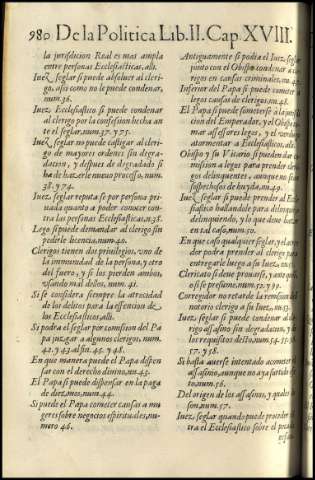 980 De la Politica Lib. II. Cap. XVIII.
la jurisdicion Real es mas ampla
entre personas Ecclesiasticas, alli.
Iuez seglar si puede absoluer al cleri-
go, assi como no le puede condenar,
num. 36.
Iuez Ecclesiastico si puede condenar
al clerigo por la confession hecha an
te el seglar, num. 37. y 75.
Iuez seglar no puede castigar al cleri-
go de mayores ordenes sin degra-
dacion, y despues de degradado si
ha de hazerle nueuo processo, num.
38. y 74.
Iuez seglar reputase por persona pri-
uada quanto a poder conocer con-
tra las personas Ecclesiasticas, n. 38.
Lego si puede demandar al clerigo sin
pedirle licencia, num. 40.
Clerigos tienen dos priuilegios, vno de
la immunidad de la persona, y otro
del fuero, y si los pierden ambos,
vsando mal dellos, num. 41.
Si se considera siempre la atrocidad
de los delitos para la essencion de
los Ecclesiasticos, alli.
Si podra el seglar por comission del Pa
pa juzgar a algunos clerigos, num.
42. y 43. al fin. 45. y 48.
En que manera puede el Papa dispen
sar con el derecho diuino, nu. 43.
El Papa si puede dispensar en la paga
de diezmos, num. 44.
Si puede el Papa cometer causas a mu
geres sobre negocios espirituales, nu-
mero 46.
Antiguamente si podia el Iuez seglar
junto con el Obispo condenar a cle-
rigos en causas criminales, nu.
Inferior del Papa si puede cometer a
legos causas de clerigos, nu. 48.
El Papa si puede someterse a la jurisdi-
cion del Emperador, y el Obispo to-
mar assessores legos, y el verdugo
atormentar a Ecclesiasticos, alli.
Obispo y su Vicario si pueden dar co-
mission a legos para prender cleri-
gos delinquentes, aunque no sean
sospechosos de huyda, nu. 49.
Iuez seglar si puede prender al Eccle-
siastico hallandole para delinquir,
delinquiendo, y lo que deue hazer
en tal caso, num. 50.
En que caso qualquier seglar, y el acree-
dor podra prender al clerigo para
entregarle luego a su Iuez, nu.
Clericato si deue prouarse, y ante quien
o si se presume, num. 52. y 99.
Corregidor no retarde la remission del
notorio clerigo a su Iuez, nu. 53.
Iuez seglar si puede condenar al cle-
rigo assasino sin degradacion, y de
los requisitos desto, num. 54. 55. 56.
57. y 58.
Si basta auerse intentado cometer el
assasinio, aunque no aya surtido efe-
to, num. 56.
Del origen de los assasinos, y quales
son, num. 57.
Iuez seglar quando puede proceder con
tra el Ecclesiastico sobre el peca-